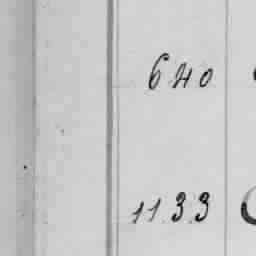 640
1133